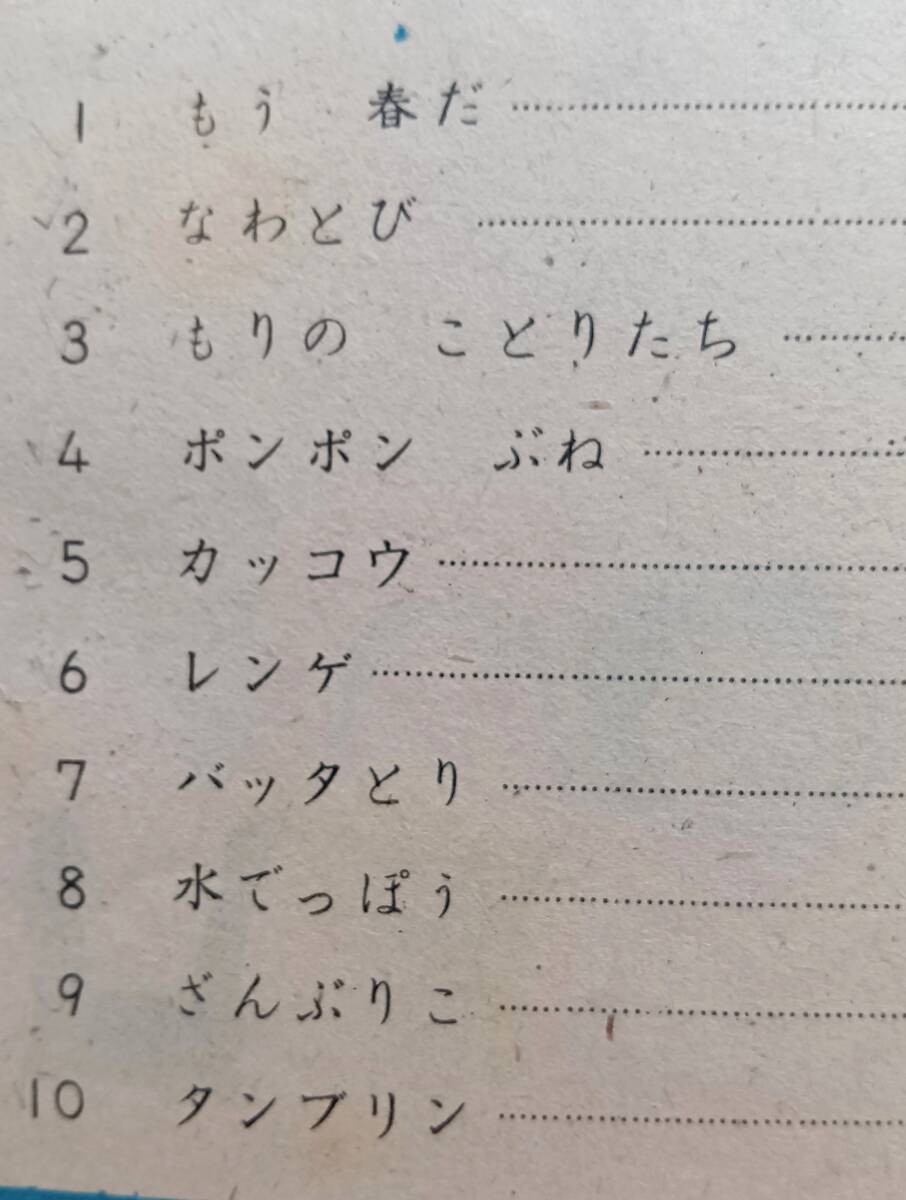 1 もう 春だ ……………………
2 なわとび ……………………
3 もりの ことりたち …………
4 ポンポン ぶね ………………
5 カッコウ ……………………
6 レンゲ ………………………
7 バッタとり …………………
8 水でっぽう …………………
9 ざんぶりこ …………………
10 タンブリン …………………